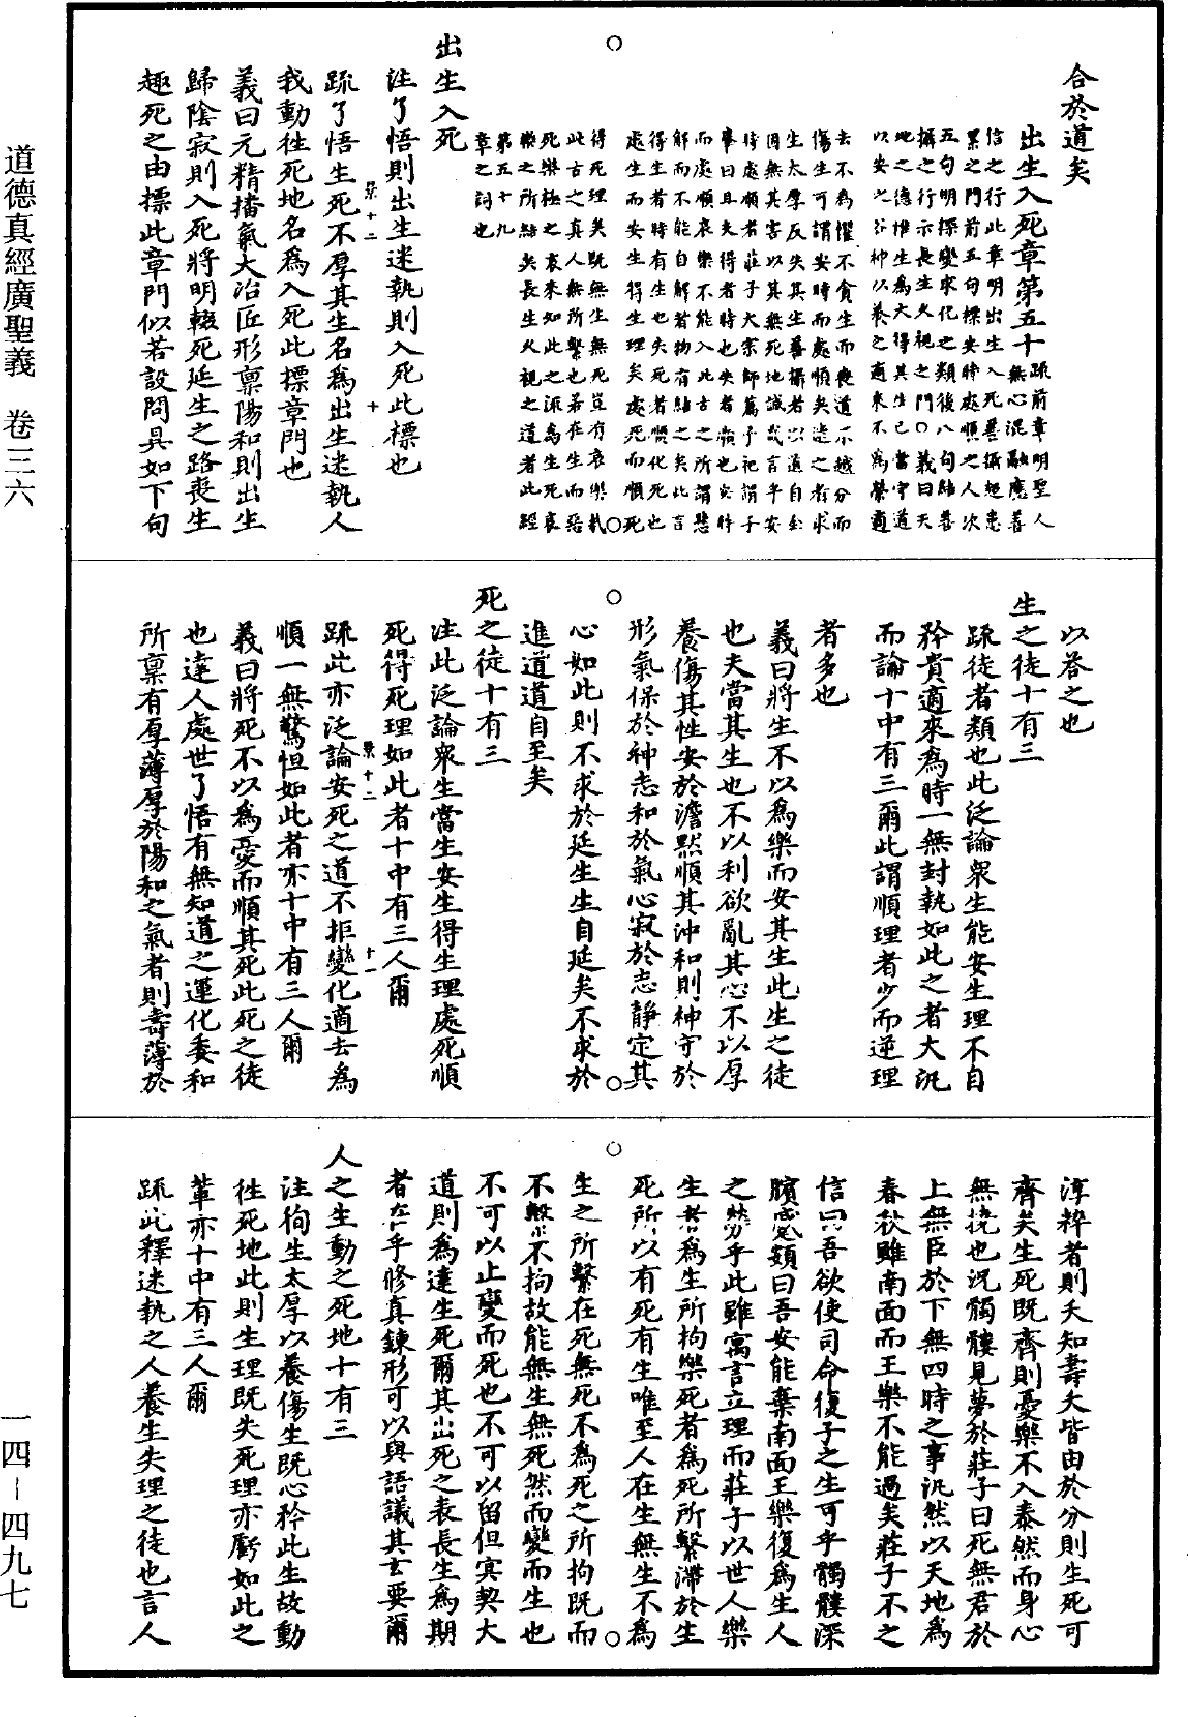 道德真經廣聖義　卷三六
一四—四九七
合於道矣
出生入死章第五十
疏前章明聖人
無心混融應善
信之行此章明出生入死善攝超患
累之門前五句標安時處順之人次
五句明標變求化之類後八句結善
攝之行示長生久視之門○義曰天
地之德惟生為大得其生已當守道
以安之谷神以養之適來不為榮適
去不為懼不貪生而喪道不越分而
傷生可謂安時而處順矣迷之者求
生太厚反失其生善攝者以道自全
因無其害以其無死地誠哉言乎安
時處順者莊子大宗師篇子祀謂子
輿曰且夫得者時也失者順也安時
而處順哀樂不能入此古之所謂懸
解而不能自解者物有結之矣此言
得生者時有生也失死者順化死也
處生而安生得生理矣處死而順死
得死理矣既無生無死豈有哀樂哉
此古之真人無所繫也若在生而惡
死樂極之哀來如此之流為生死哀
樂之所結矣長生久視之道者此經
第五十九
章之詞也
出生入死
注了悟則出生迷執則入死此標也
疏了悟生死不厚其生名為出生迷執人
我動往死地名為入死此標章門也
義曰元精播氣大冶匠形稟陽和則出生
歸陰寂則入死將明輟死延生之路喪生
趣死之由標此章門似若設問具如下句
以荅之也
生之徒十有三
疏徒者類也此泛論衆生能安生理不自
矜貴適來為時一無封執如此之者大汎
而論十中有三爾此謂順理者少而逆理
者多也
義曰將生不以為樂而安其生此生之徒
也夫當其生也不以利欲亂其心不以厚
養傷其性安於澹默順其沖和則神守於
形氣保於神志和於氣心寂於志靜定其
心如此則不求於延生生自延矣不求於
進道道自至矣
死之徒十有三
注此泛論衆生當生安生得生理處死順
死得死理如此者十中有三人爾
疏此亦泛論安死之道不拒變化適去為
順一無驚怛如此者亦十中有三人爾
義曰將死不以為憂而順其死此死之徒
也達人處世了悟有無知道之運化委和
所稟有厚薄厚於陽和之氣者則壽薄於
淳粹者則夭知壽夭皆由於分則生死可
齊矣生死既齊則憂樂不入泰然而身心
無撓也況髑髏見夢於莊子曰死無君於
上無臣於下無四時之事汎然以天地為
春秋雖南面而王樂不能過矣莊子不之
信曰吾欲使司命復子之生可乎髑髏深
臏蹙頞曰吾安能棄南面王樂復為生人
之勞乎此雖寓言立理而莊子以世人樂
生者為生所拘樂死者為死所繫滯於生
死所以有死有生唯至人在生無生不為
生之所繫在死無死不為死之所拘既而
不繫不拘故能無生無死然而變而生也
不可以止變而死也不可以留但冥契大
道則為達生死爾其出死之表長生為期
者在乎修真鍊形可以與語議其玄要爾
人之生動之死地十有三
注徇生太厚以養傷生既心矜此生故動
往死地此則生理既失死理亦虧如此之
輩亦十中有三人爾
疏此釋迷執之人養生失理之徒也言人